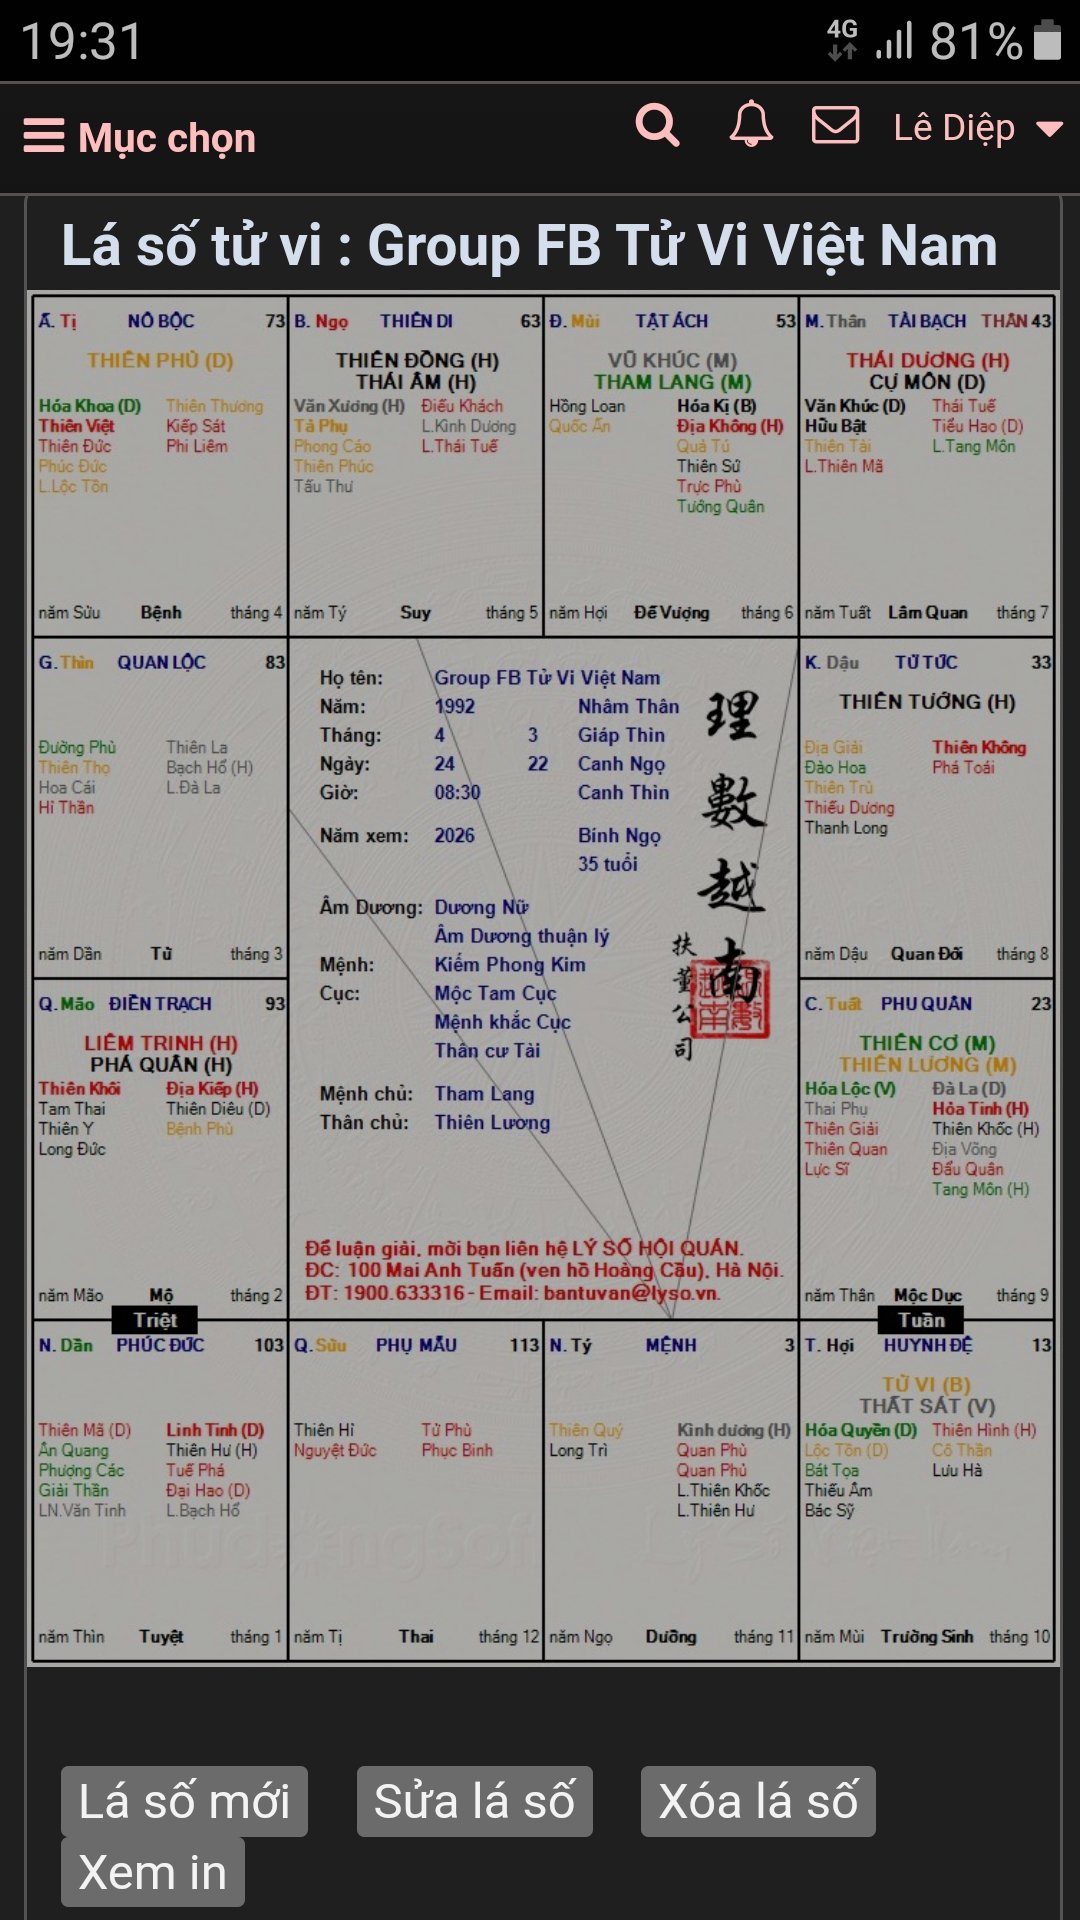 19:31
4G 81%
Mục chọn
Lê Diệp
Lá số tử vi : Group FB Tử Vi Việt Nam
Ấ. Tị NÔ BỘC 73
THIÊN PHỦ (D)
Hóa Khoa (D) Thiên Thương
Thiên Việt Kiếp Sát
Thiên Đức Phi Liêm
Phúc Đức
L.Lộc Tồn
năm Sửu Bệnh tháng 4
B. Ngọ THIÊN DI 63
THIÊN ĐỒNG (H)
THÁI ÂM (H)
Văn Xương (H) Điếu Khách
Tả Phụ L.Kình Dương
Phong Cáo L.Thái Tuế
Thiên Phúc
Tấu Thư
năm Tý Suy tháng 5
Đ. Mùi TẬT ÁCH 53
VŨ KHÚC (M)
THAM LANG (M)
Hồng Loan Hóa Kị (B)
Quốc Ấn Địa Không (H)
Quả Tú
Thiên Sứ
Trực Phù
Tướng Quân
năm Hợi Đế Vượng tháng 6
M. Thân TÀI BẠCH THÂN 43
THÁI DƯƠNG (H)
CỰ MÔN (D)
Văn Khúc (D) Thái Tuế
Hữu Bật Tiểu Hao (D)
Thiên Tài L.Tang Môn
L.Thiên Mã
năm Tuất Lâm Quan tháng 7
G. Thìn QUAN LỘC 83
Đường Phù Thiên La
Thiên Thọ Bạch Hổ (H)
Hoa Cái L.Đà La
Hỉ Thần
năm Dần Tử tháng 3
Họ tên: Group FB Tử Vi Việt Nam
Năm: 1992 Nhâm Thân
Tháng: 4 3 Giáp Thìn
Ngày: 24 22 Canh Ngọ
Giờ: 08:30 Canh Thìn
Năm xem: 2026 Bính Ngọ
35 tuổi
Âm Dương: Dương Nữ
Âm Dương thuận lý
Mệnh: Kiếm Phong Kim
Cục: Mộc Tam Cục
Mệnh khắc Cục
Thân cư Tài
Mệnh chủ: Tham Lang
Thân chủ: Thiên Lương
理數越南
扶董公司
Để luận giải, mời bạn liên hệ LÝ SỐ HỘI QUÁN.
ĐC: 100 Mai Anh Tuấn (ven hồ Hoàng Cầu), Hà Nội.
ĐT: 1900.633316 - Email: bantuvan@lyso.vn.
K. Dậu TỬ TỨC 33
THIÊN TƯỚNG (H)
Địa Giải Thiên Không
Đào Hoa Phá Toái
Thiên Trù
Thiếu Dương
Thanh Long
năm Dậu Quan Đới tháng 8
Q. Mão ĐIỀN TRẠCH 93
LIÊM TRINH (H)
PHÁ QUÂN (H)
Thiên Khôi Địa Kiếp (H)
Tam Thai Thiên Diêu (D)
Thiên Y Bệnh Phù
Long Đức
năm Mão Mộ tháng 2
C. Tuất PHU QUÂN 23
THIÊN CƠ (M)
THIÊN LƯƠNG (M)
Hóa Lộc (V) Đà La (D)
Thai Phụ Hỏa Tinh (H)
Thiên Giải Thiên Khốc (H)
Thiên Quan Địa Võng
Lực Sĩ Đẩu Quân
Tang Môn (H)
năm Thân Mộc Dục tháng 9
Triệt
Tuần
N. Dần PHÚC ĐỨC 103
Thiên Mã (D) Linh Tinh (D)
Ân Quang Thiên Hư (H)
Phượng Các Tuế Phá
Giải Thần Đại Hao (D)
LN.Văn Tinh L.Bạch Hổ
năm Thìn Tuyệt tháng 1
Q. Sửu PHỤ MẪU 113
Thiên Hỉ Tử Phù
Nguyệt Đức Phục Binh
năm Tị Thai tháng 12
N. Tý MỆNH 3
Thiên Quý Kình dương (H)
Long Trì Quan Phù
Quan Phủ
L.Thiên Khốc
L.Thiên Hư
năm Ngọ Dưỡng tháng 11
T. Hợi HUYNH ĐỆ 13
TỬ VI (B)
THẤT SÁT (V)
Hóa Quyền (D) Thiên Hình (H)
Lộc Tồn (D) Cô Thần
Bát Tọa Lưu Hà
Thiếu Âm
Bác Sỹ
năm Mùi Trường Sinh tháng 10
Lá số mới
Sửa lá số
Xóa lá số
Xem in